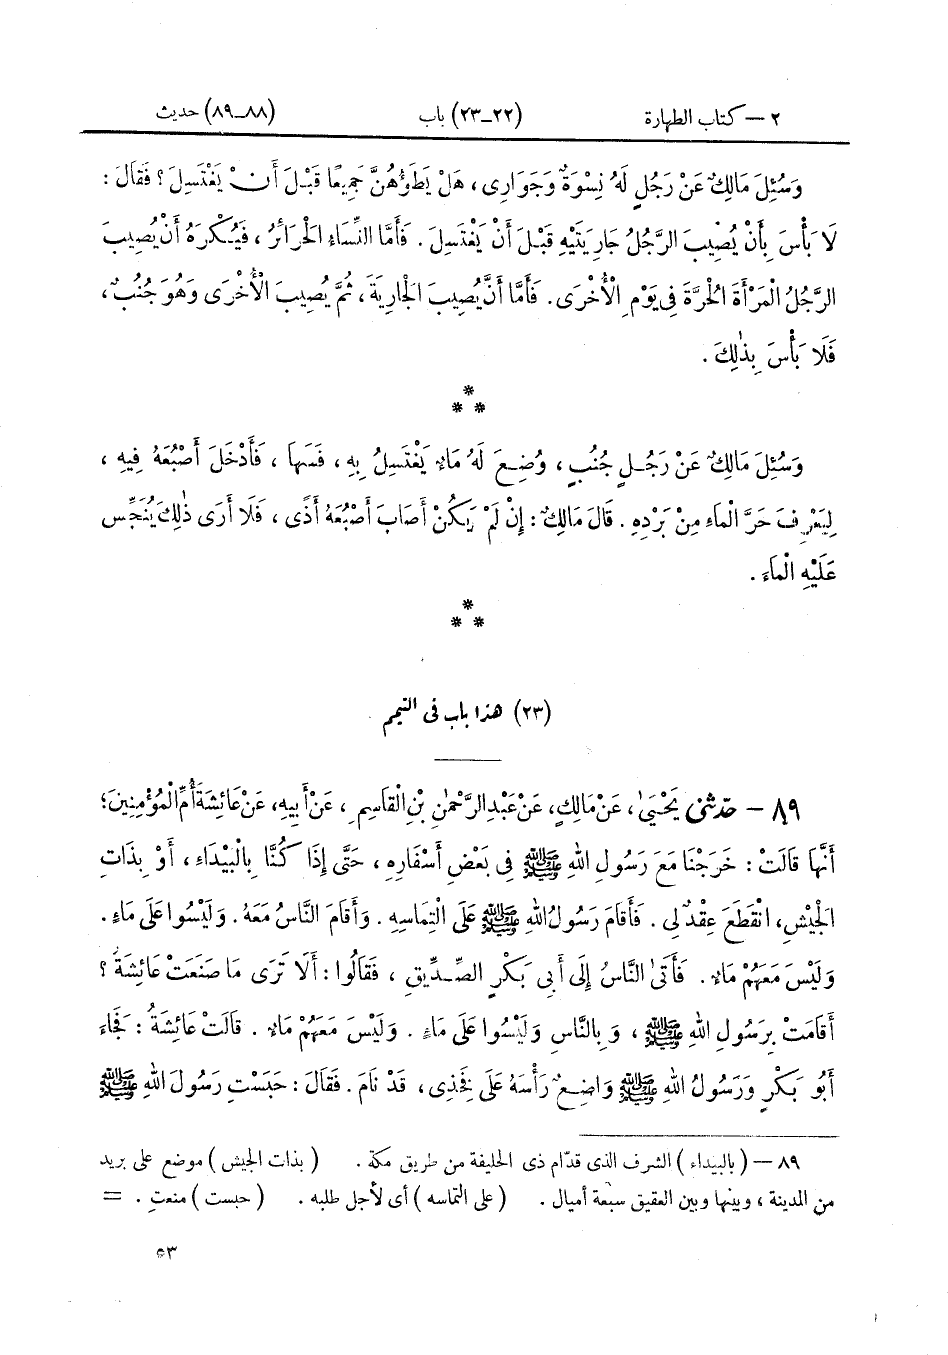 ٢ – كتاب الطهارة (٢٢–٢٣) باب (٨٨–٨٩) حديث
وَسُئِلَ مَالِكٌ عَنْ رَجُلٍ لَهُ نِسْوَةٌ وَجَوَارِى، هَلْ يَطَؤُهُنَّ جَمِيعًا قَبْلَ أَنْ يَغْتَسِلَ؟ فَقَالَ:
لَا بَأْسَ بِأَنْ يُصِيبَ الرَّجُلُ جَارِيَتَيْهِ قَبْلَ أَنْ يَغْتَسِلَ. فَأَمَّا النِّسَاءُ الْحَرَائِرُ، فَيُكْرَهُ أَنْ يُصِيبَ
الرَّجُلُ الْمَرْأَةَ الْحُرَّةَ فِى يَوْمِ الْأُخْرَى. فَأَمَّا أَنْ يُصِيبَ الْجَارِيَةَ، ثُمَّ يُصِيبَ الْأُخْرَى وَهُوَ جُنُبٌ،
فَلَا بَأْسَ بِذٰلِكَ.
*
* *
وَسُئِلَ مَالِكٌ عَنْ رَجُلٍ جُنُبٍ، وُضِعَ لَهُ مَاءٌ يَغْتَسِلُ بِهِ، فَسَهَا، فَأَدْخَلَ أَصْبُعَهُ فِيهِ،
لِيَعْرِفَ حَرَّ الْمَاءِ مِنْ بَرْدِهِ. قَالَ مَالِكٌ: إِنْ لَمْ يَكُنْ أَصَابَ أَصْبُعَهُ أَذًى، فَلَا أَرَى ذٰلِكَ يُنَجِّسُ
عَلَيْهِ الْمَاءَ.
*
* *
(٢٣) هذا باب فى التيمم
٨٩ – حدّثنى يَحْيَىٰ، عَنْ مَالِكٍ، عَنْ عَبْدِ الرَّحْمٰنِ بْنِ الْقَاسِمِ، عَنْ أَبِيهِ، عَنْ عَائِشَةَ أُمِّ الْمُؤْمِنِينَ؛
أَنَّهَا قَالَتْ: خَرَجْنَا مَعَ رَسُولِ اللهِ ﷺ فِى بَعْضِ أَسْفَارِهِ، حَتَّى إِذَا كُنَّا بِالْبَيْدَاءِ، أَوْ بِذَاتِ
الْجَيْشِ، انْقَطَعَ عِقْدٌ لِى. فَأَقَامَ رَسُولُ اللهِ ﷺ عَلَى الْتِمَاسِهِ. وَأَقَامَ النَّاسُ مَعَهُ. وَلَيْسُوا عَلَى مَاءٍ.
وَلَيْسَ مَعَهُمْ مَاءٌ. فَأَتَى النَّاسُ إِلَى أَبِى بَكْرٍ الصِّدِّيقِ، فَقَالُوا: أَلَا تَرَى مَا صَنَعَتْ عَائِشَةُ؟
أَقَامَتْ بِرَسُولِ اللهِ ﷺ، وَبِالنَّاسِ وَلَيْسُوا عَلَى مَاءٍ. وَلَيْسَ مَعَهُمْ مَاءٌ. قَالَتْ عَائِشَةُ: فَجَاءَ
أَبُو بَكْرٍ وَرَسُولُ اللهِ ﷺ وَاضِعٌ رَأْسَهُ عَلَى فَخِذِى، قَدْ نَامَ. فَقَالَ: حَبَسْتِ رَسُولَ اللهِ ﷺ
٨٩ – (بالبيداء) الشرف الذى قدّام ذى الحليفة من طريق مكة. (بذات الجيش) موضع على بريد
من المدينة، وبينها وبين العقيق سبعة أميال. (على التماسه) أى لأجل طلبه. (حبست) منعتِ. =
*٣